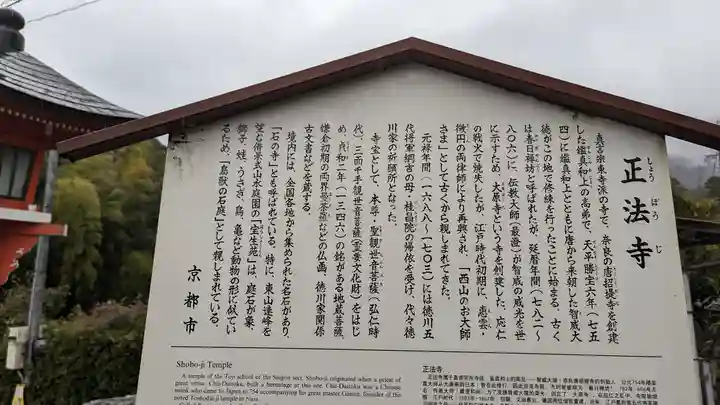 正法寺
しょうぼうじ
真言宗東寺派の寺で、奈良の唐招提寺を創建
した鑑真和上の高弟で、天平勝宝六年(七五
四)に鑑真和上とともに唐から来朝した智威大
徳がこの地で修練を行ったことに始まる。古く
は春日禅坊と呼ばれたが、延暦年間(七八二〜
八〇六)に、伝教大師(最澄)が智威の威光を世
に示すため、大原寺という寺を創建した。応仁
の戦火で焼失したが、江戸時代初期に、恵雲・
微円の両律師により再興され、「西山のお大師
さま」として古くから親しまれてきた。
元禄年間(一六八八〜一七〇三)には徳川五
代将軍綱吉の母・桂昌院の帰依を受け、代々徳
川家の祈願所となった。
寺宝として、本尊・聖観世音菩薩(弘仁時
代)、三面千手観世音菩薩(重要文化財)をはじ
め、貞和二年(一三四六)の銘がある地蔵菩薩、
鎌倉初期の両界曼荼羅などの仏画、徳川家関係
古文書などを蔵する。
境内には、全国各地から集められた名石があり、
「石の寺」とも呼ばれている。特に、東山連峰を
望む借景式山水庭園の「宝生苑」は、庭石が象、
獅子、蛙、うさぎ、鳥、亀など動物の形に似てい
るため、「鳥獣の石庭」として親しまれている。
京都市
Shobo-ji Temple
A temple of the Toji school of the Shingon sect. Shoboji originated when a priest of
great virtue, Chii-Daitoku, built a hermitage at this site. Chii-Daitoku was a Chinese
monk who came to Japan in 754 accompanying his great master Ganjin, founder of the
noted Toshodaiji temple in Nara.
正法寺